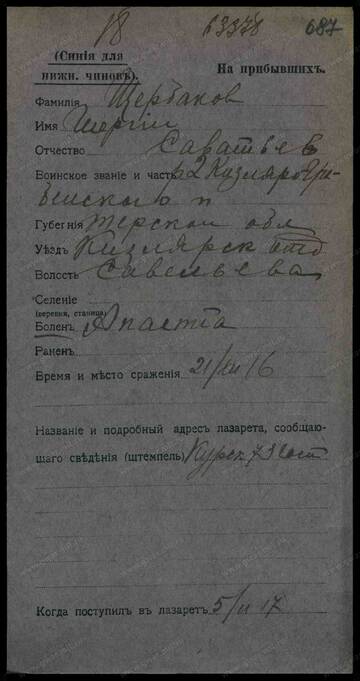 18 63378 687
(Синія для нижн. чиновъ).
На прибывшихъ.
Фамилія Щербаков
Имя Сергій
Отчество Саватьев
Воинское званіе и часть к 2 Кизляро Гре-
бенского п
Губернія Терской обл
Уѣздъ Кизлярск отд
Волость Савельева
Селеніе
(деревня, станица)
Боленъ
Раненъ
Время и мѣсто сраженія 21/XII 16
Названіе и подробный адресъ лазарета, сообщаю-
щаго свѣдѣнія (штемпель) Курск 73 Госп
Когда поступилъ въ лазаретъ 5/II 17